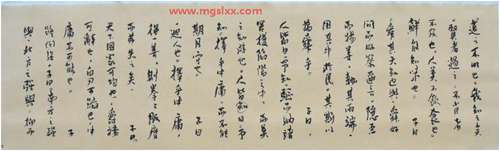 www.mgslxx.com
道之不明也我知之矣
賢者過之不肖者
不及也人莫不飲食也
鮮能知味也 子曰
舜其大知也與舜好
問而好察邇言隱惡
而揚善執其兩端
用其中於民其斯以
為舜乎 子曰
人皆曰予知驅而納諸
罟擭陷阱之中而莫
之知辟也人皆曰予
知擇乎中庸而不能
期月守也 子曰
人也擇乎中庸
得一善則拳拳服膺
而弗失之矣 子曰
天下國家可均也爵祿
可辭也白刃可蹈也中
庸不可能也 子
路問強子曰南方之強
與北方之強與抑而